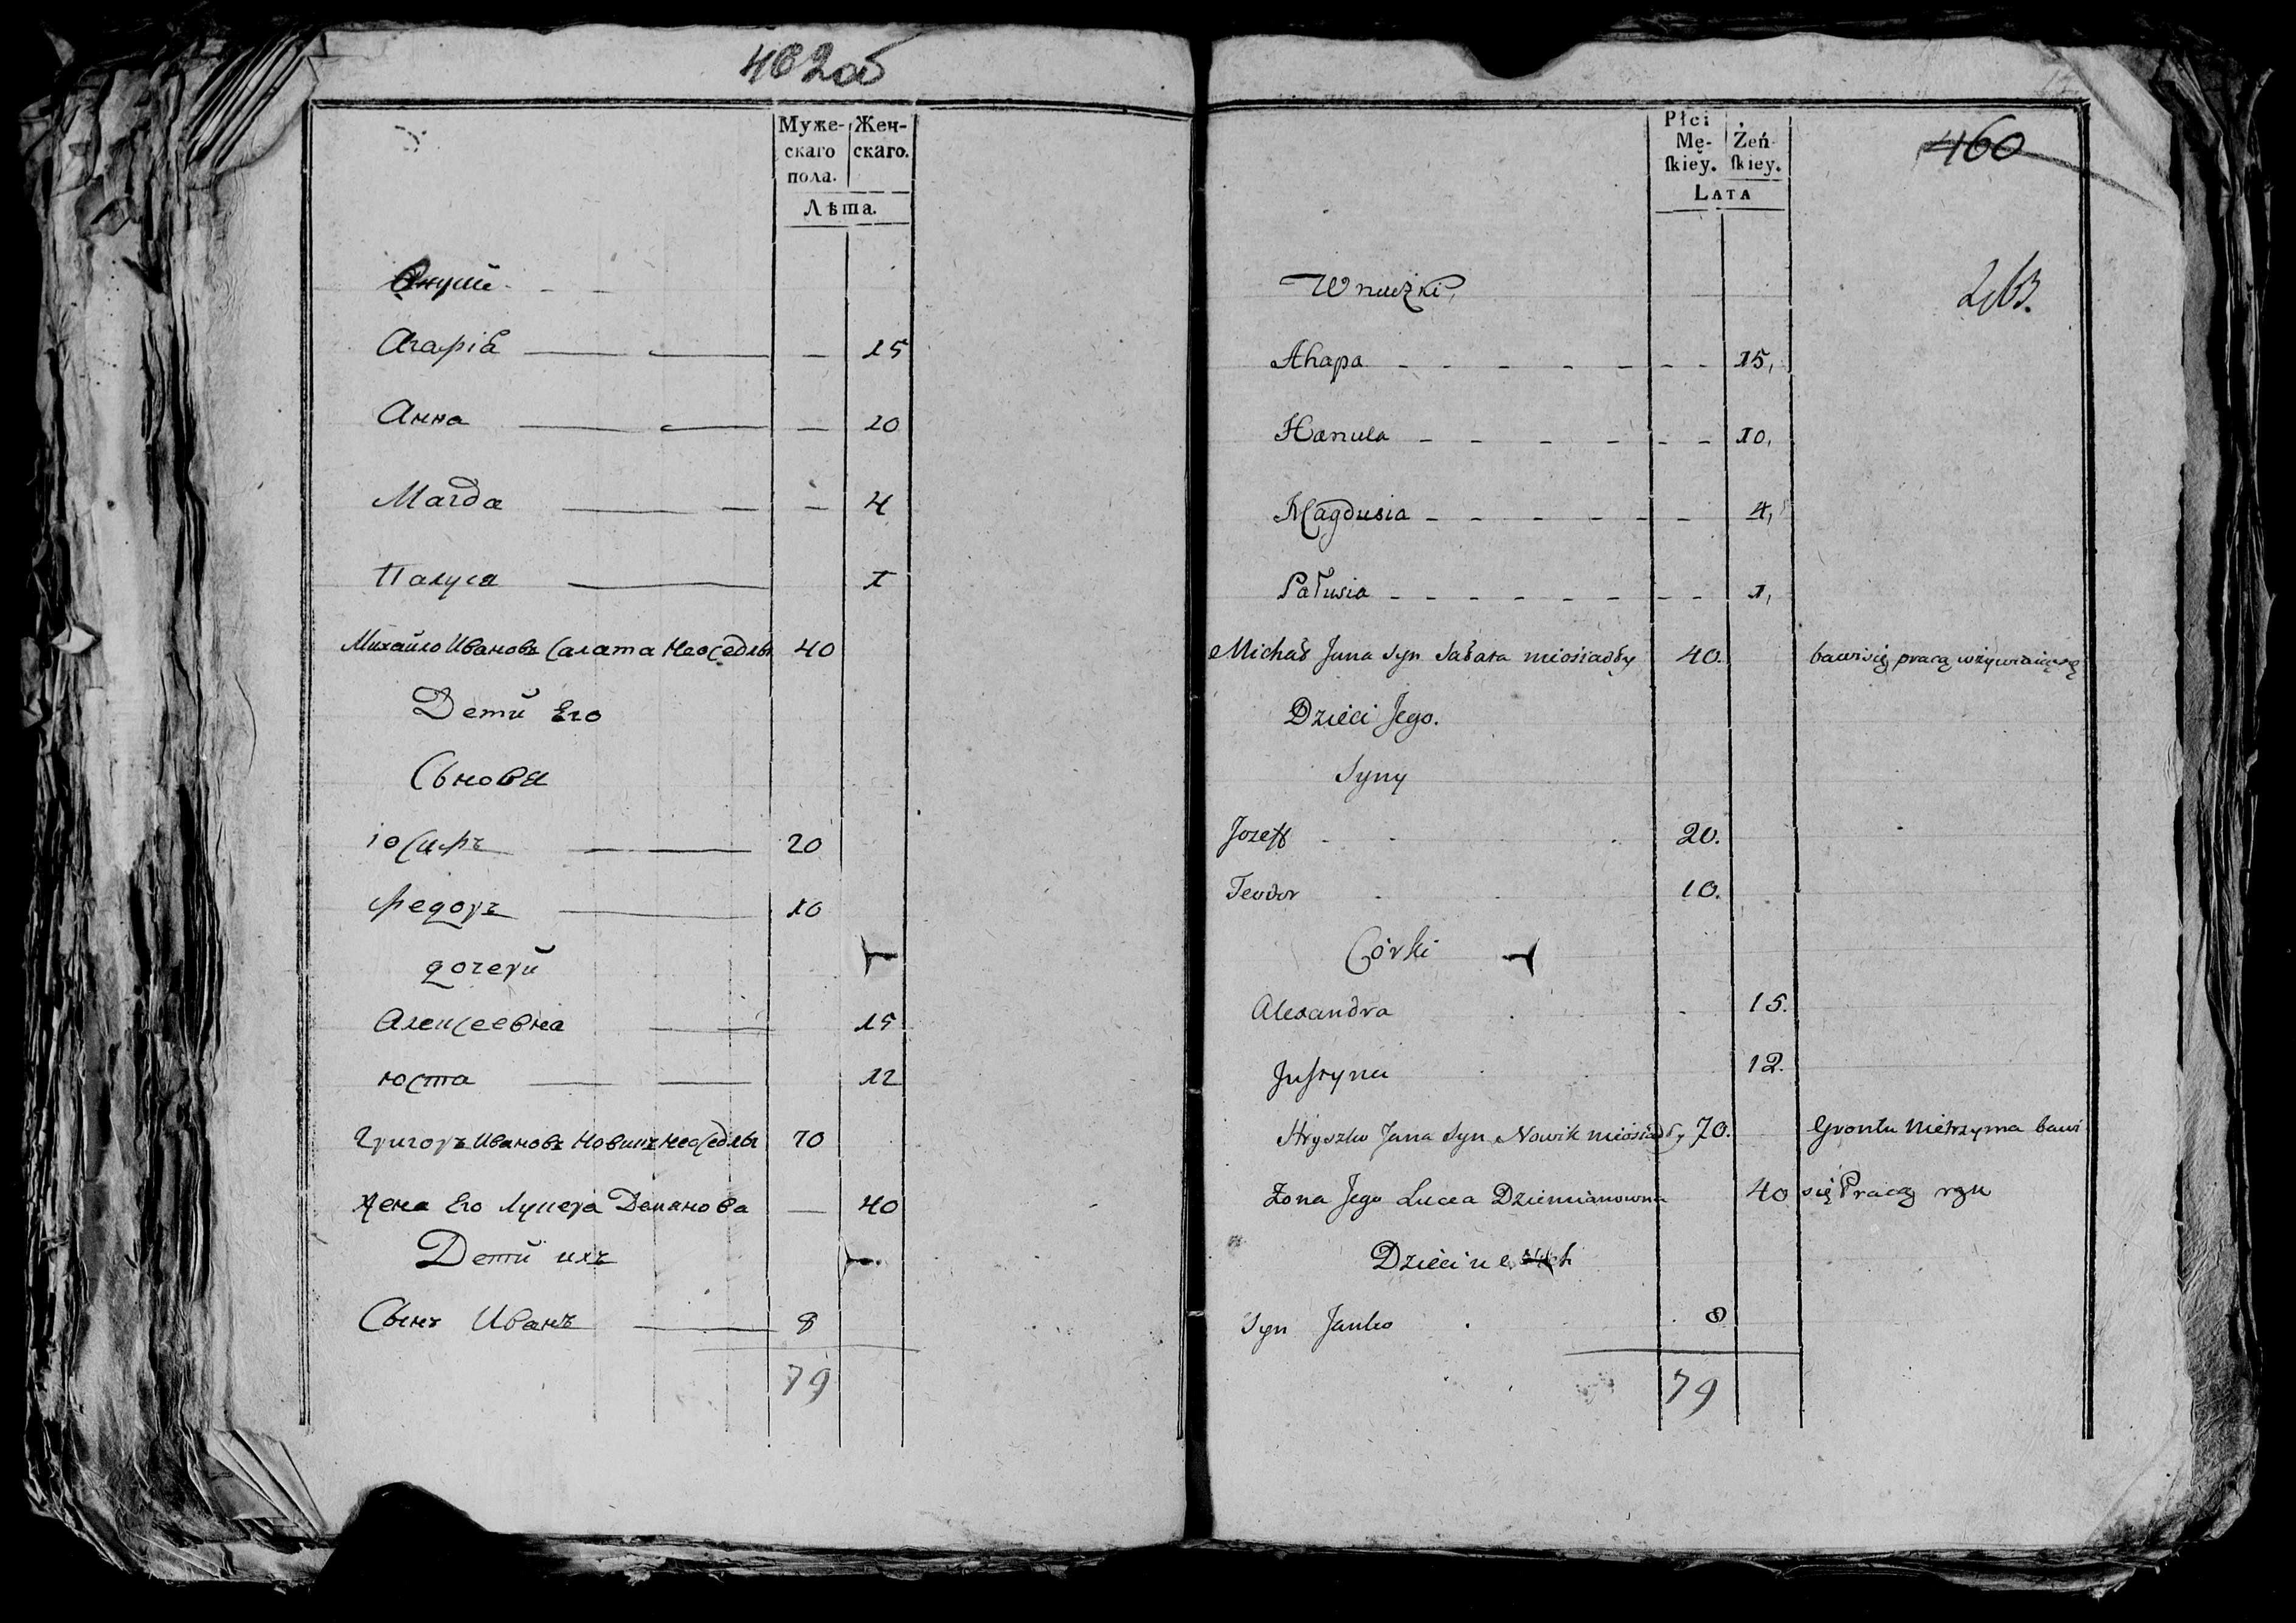 462об
Муже- Жен-
скаго скаго.
пола.
Лѣта.
Внуцы
Агарiя 15
Анна 10
Магда 4
Палуся 1
Михайло Ивановъ Салата Неоседлы 40
Дети Его
Сынова
Iосифъ 20
Федоръ 10
дочери
Алексеевна 15
Юста 12
Григоръ Ивановъ Новикъ Неоседлы 70
жена Его Луцея Деманова 40
Дети ихъ
Сынъ Иванъ 8
79
Płci
Mę- Żeń-
ſkieÿ. ſkiey.
LATA
460
Wnuczki
Ahapa 15,
Hanula 10,
Magdusia 4,
Pałusia 1,
Michał Jana Syn Sałata nieosiadły 40. bawi się pracą
Dzieci Jego.
Syny
Jozeff 20.
Teodor 10.
Córki
Alexandra 15.
Justyna 12.
Hryszko Jana Syn Nowik nieosiadły 70. Gruntu Nietrzyma bawi
Żona Jego Lucea Dziemianowna 40 się Pracą rąk
Dzieci
Syn Janko 8
79